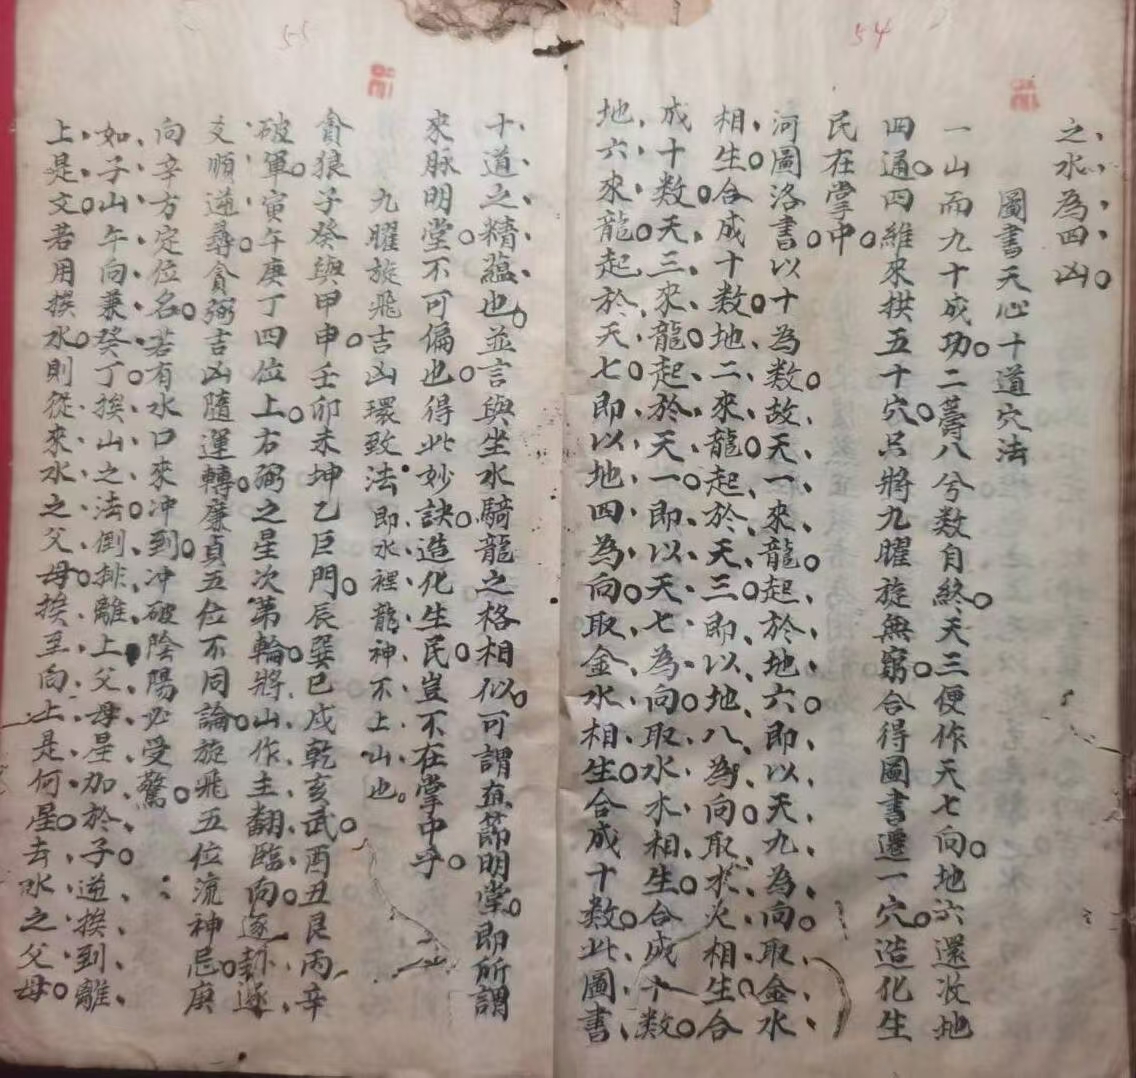 54
之水為四凶
圖書天心十道穴法
一山而九十成功二籌八兮数自終天三便作天七向地六還收地
四通四維來拱五十穴只將九曜旋無窮合得圖書遷一穴造化生
民在掌中
河圖洛書以十為数故天一來龍起於地六即以天九為向取金水
相生合成十数地二來龍起於天三即以地八為向取水火相生合
成十数天三來龍起於天一即以天七為向取水木相生合成十数
地六來龍起於天七即以地四為向取金水相生合成十数此圖書
55
十道之精蘊也並言與坐水騎龍之格相似可謂直節明堂即所謂
來脉明堂不可偏也得此妙訣造化生民豈不在掌中乎
九曜旋飛吉凶環致法即水裡龍神不上山也
貪狼子癸與甲申壬卯未坤乙巨門辰巽巳戌乾亥武酉丑艮丙辛
破軍寅午庚丁四位上右弼之星次第輪將山作主翻臨向逐卦逐
爻順逆尋貪弼吉凶隨運轉廉貞五位不同論旋飛五位流神忌庚
向辛方定位名若有水口來冲到冲破陰陽必受驚
如子山午向兼癸丁挨山之法倒排離上父母星加於子逆挨到離
上是文若用挨水則從來水之父母挨至向上是何星去水之父母